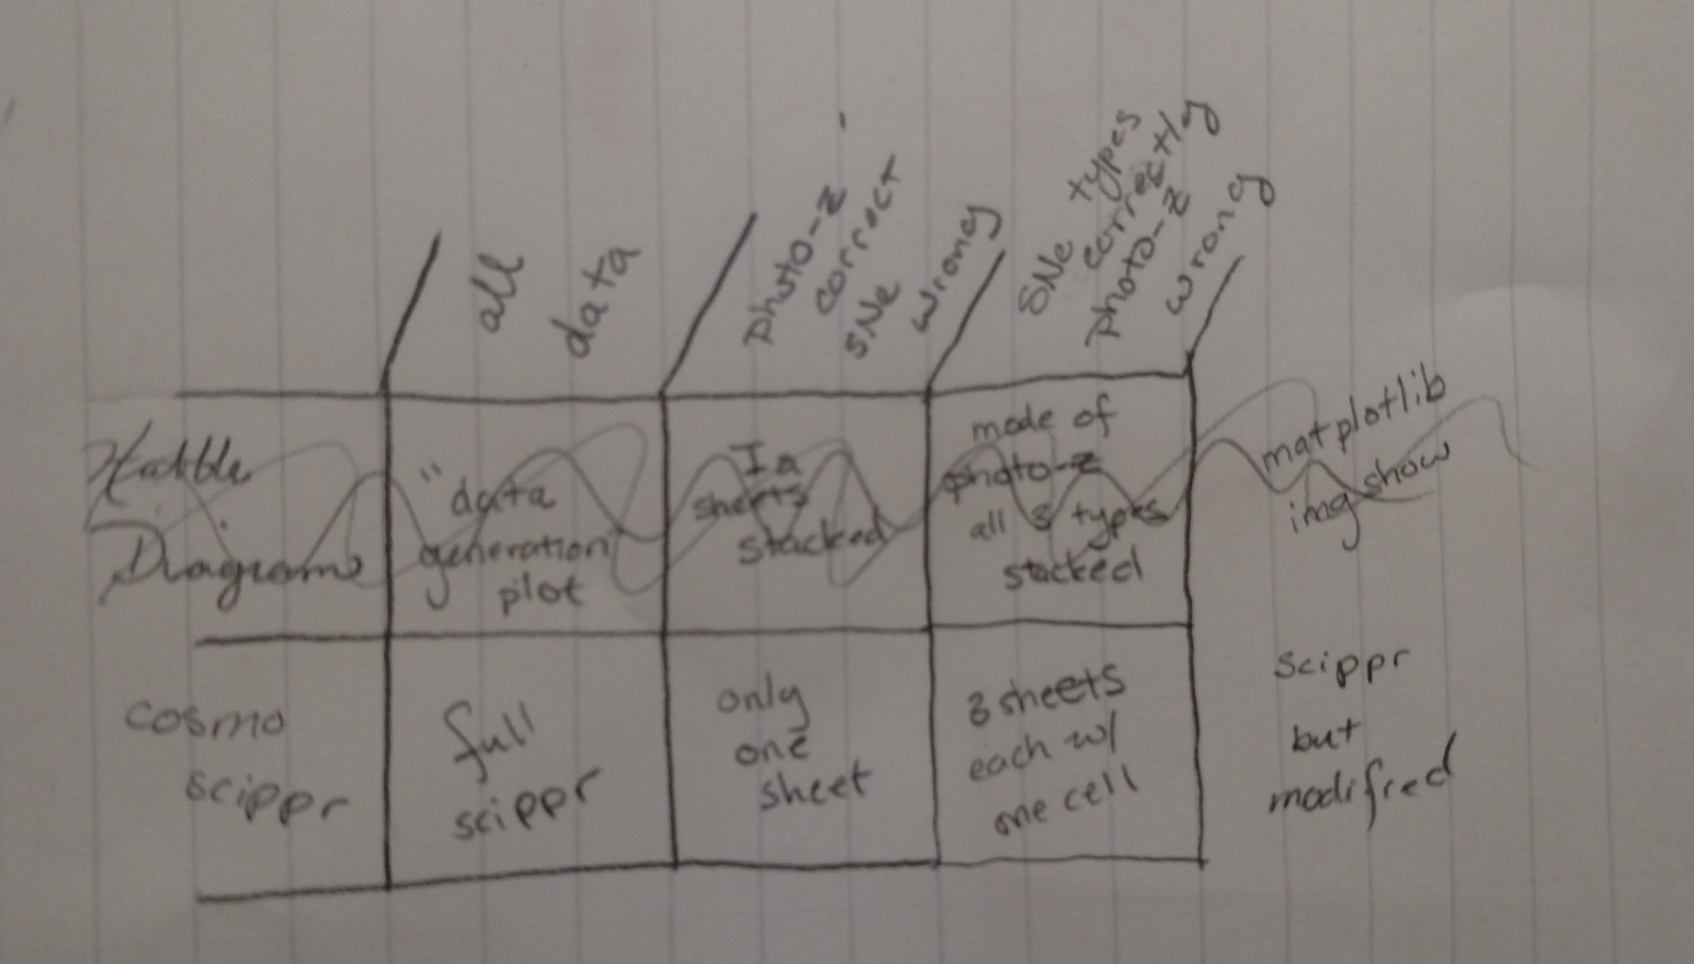 all
data
photo-z
correct
SNe
wrong
SNe types
correctly
photo-z
wrong
Hubble
Diagram
"data
generation
plot
Ia
sheets
stacked
mode of
photo-z
all 3 types
stacked
matplotlib
imgshow
cosmo
scippr
full
scippr
only
one
sheet
3 sheets
each w/
one cell
scippr
but
modified